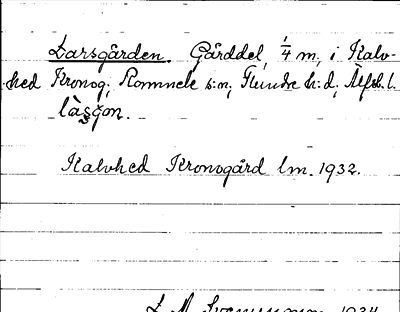 Larsgården. Gårddel, 1/4 m, i Kalv-
hed Kronog., Romnele s:n, Flundre h:d, Älfsb. l.
làsgo̧n.
Kalvhed Kronogård lm. 1932.
1934